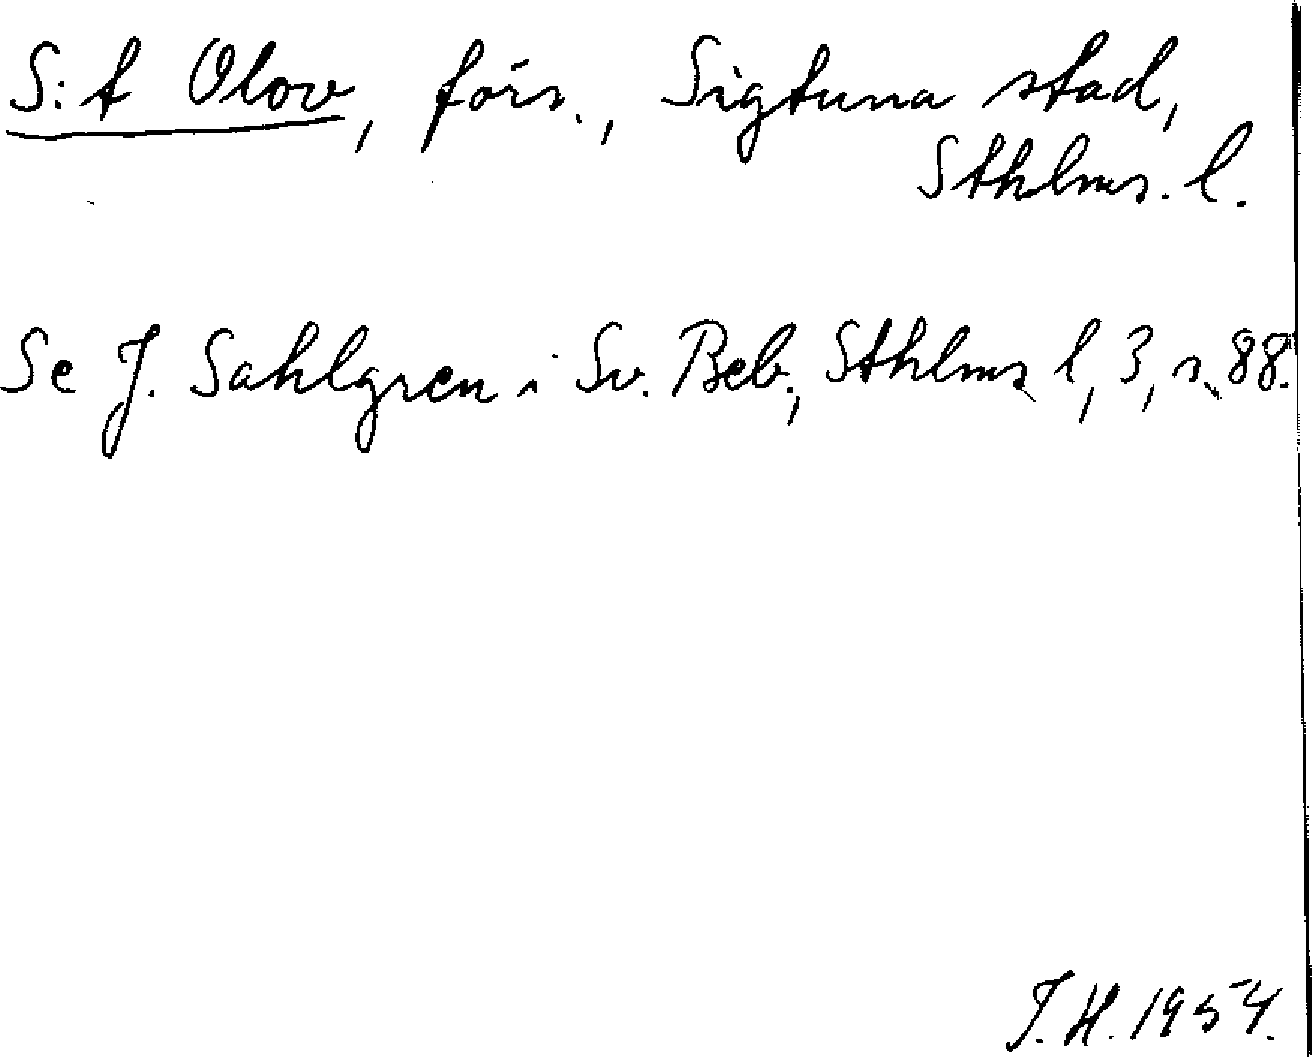 S:t Olov, förs., Sigtuna stad,
Sthlms. l.
Se J. Sahlgren i Sv. Beb., Sthlms l, 3, s. 88.
J.H. 1954.